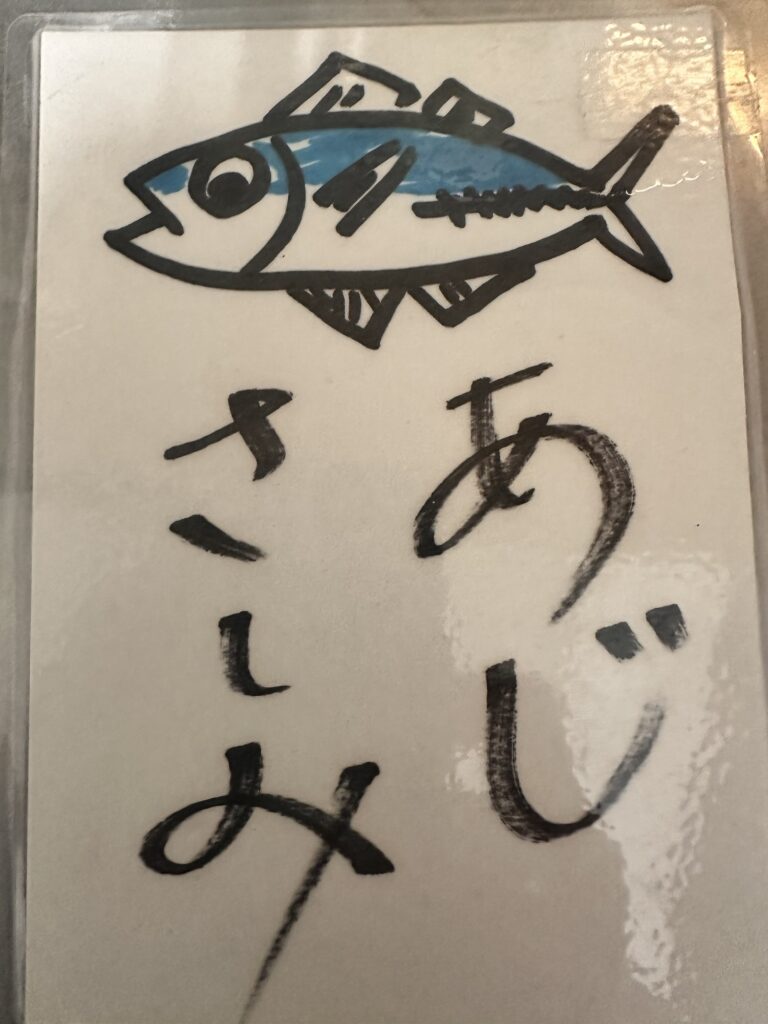 あじ
さしみ